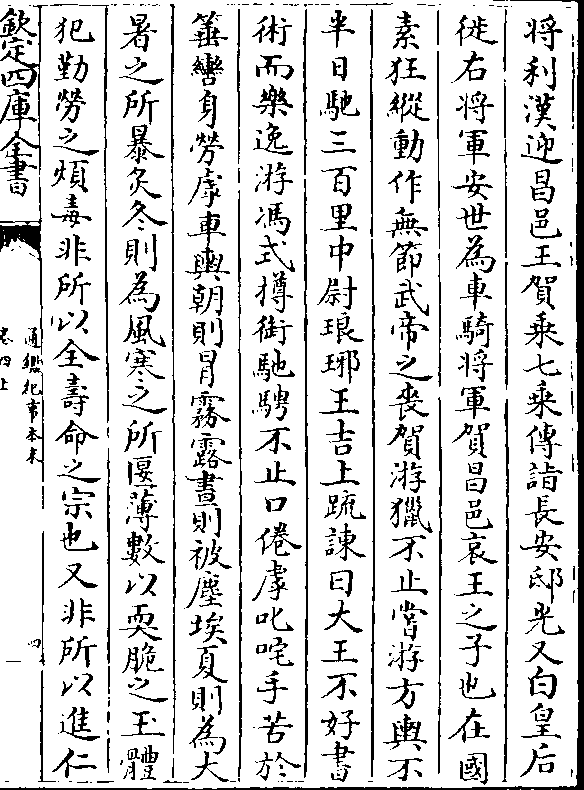 將利漢迎昌邑王賀乗七乗傳詣長安邸光又白皇后
徙右将軍安世為車騎将軍賀昌邑哀王之子也在國
素狂縱動作無節武帝之喪賀游獵不止嘗游方輿不
半日馳三百里中尉琅琊王吉上疏諫曰大王不好書
術而樂逸游馮式撙銜馳騁不止口倦虖叱咤手苦於
箠轡身勞虖車輿朝則冒霧露晝則被塵埃夏則為大
暑之所暴炙冬則為風寒之所匽薄數以耎脆之玉體
犯勤勞之煩毒非所以全壽命之宗也又非所以進仁
欽定四庫全書
通鑑紀事本末
卷四上
四